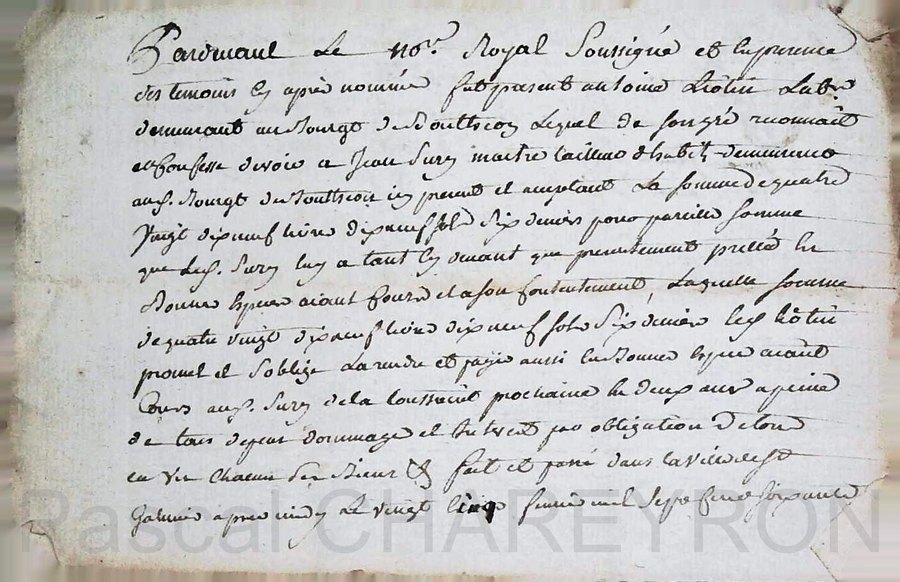 Pardevant Le no.re Royal Soussigné et en presence
des temoins cy après nommés fut present antoine Lab.r
demeurant au Bourgt de Lequel de son gré reconnait
et confesse devoir a Jean Surey maitre tailleur d'habits demeurant
aud. Bourgt de icy present et aceptant La somme de quatre
Vingt dixneuf livre dixneuf sols Six deniers pour pareille somme
que Led. Surey luy a tant cy devant que presentement prêté en
Bonne Espece aiant Cours et a son Contentement, Laquelle somme
de quatre vingt dixneuf livre dixneuf sols Six deniers led.
promet et S'oblige La rendre et payer aussi en Bonne Espece aiant
Cours aud. Surey de la toussaint prochaine en deux ans a peine
de tous depens dommage et Interest par obligation de tous
en Un Chacun Ses Biens &c fait et passé dans la ville de St
Galmier apres midy Le vingt cinq mil Sept Cens Soixante
Pascal CHAREYRON